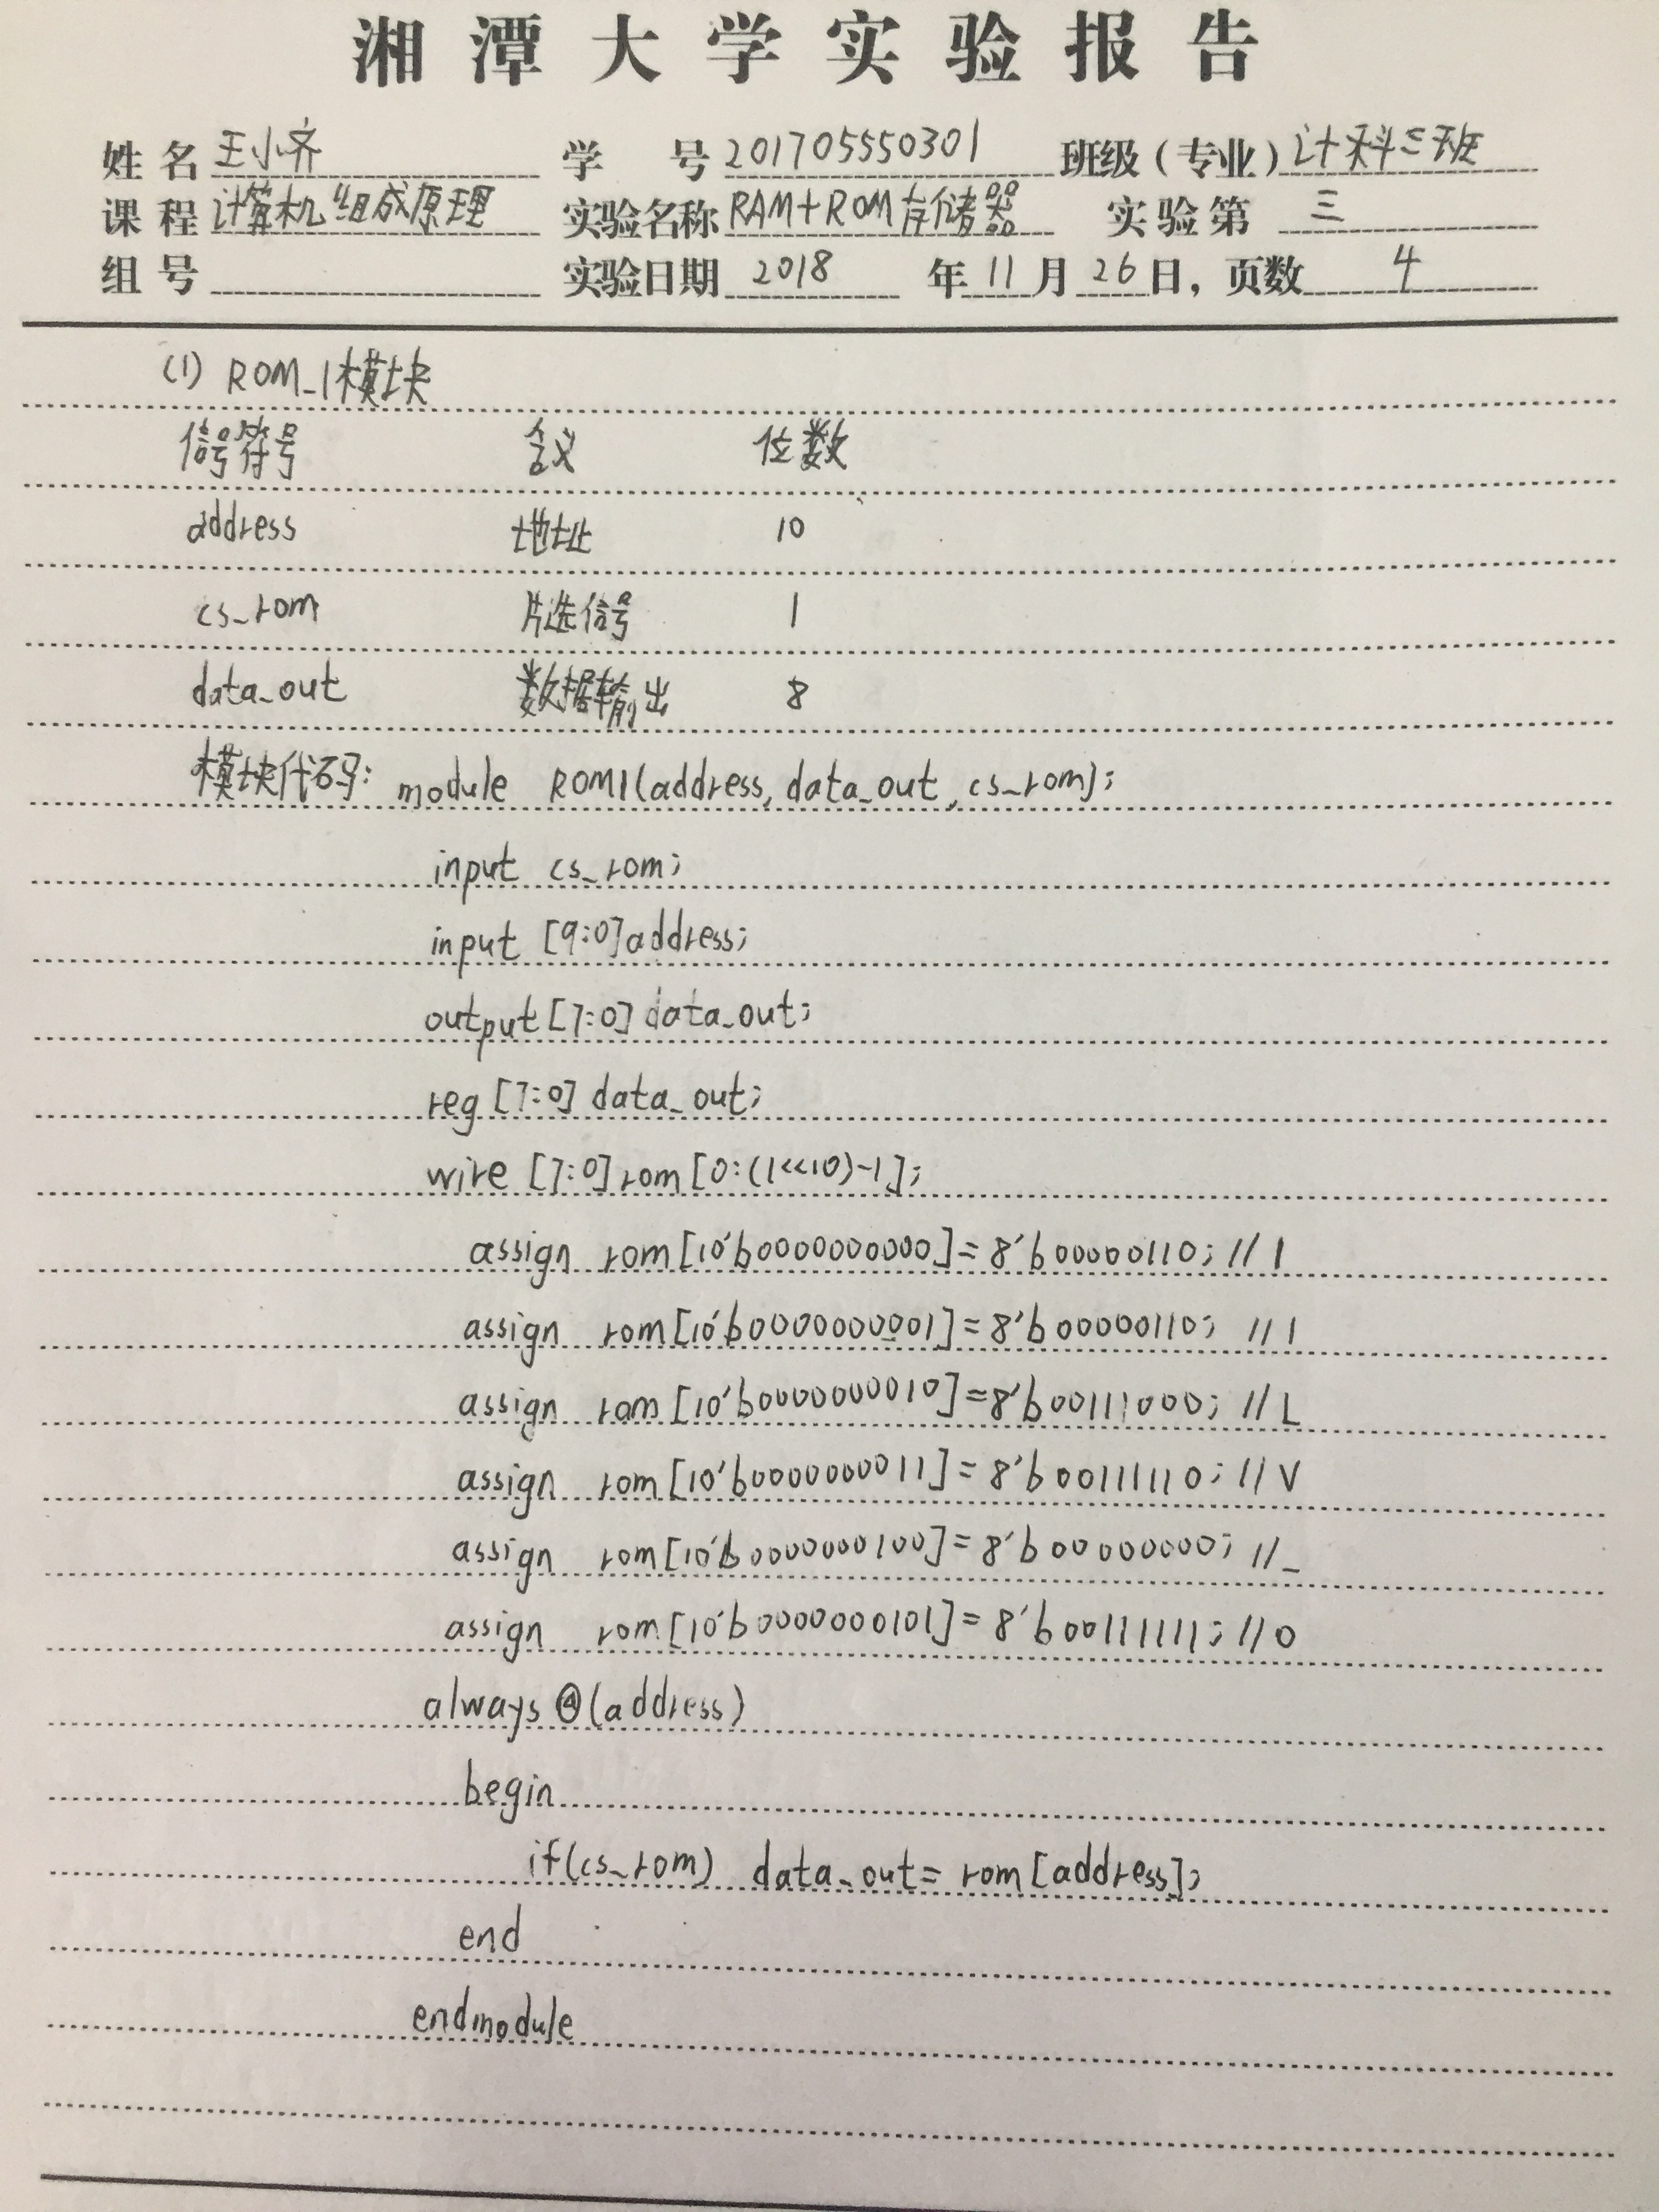 湘潭大学实验报告
姓名 王小齐 学号 201705550301 班级(专业) 计科三班
课程 计算机组成原理 实验名称 RAM+ROM存储器 实验第 三
组号 实验日期 2018 年 11 月 26 日, 页数 4
(1) ROM_1模块
信号符号 含义 位数
address 地址 10
cs_rom 片选信号 1
data_out 数据输出 8
模块代码: module ROM1(address, data_out, cs_rom);
input cs_rom;
input [9:0]address;
output [7:0] data_out;
reg [7:0] data_out;
wire [7:0] rom [0:(1<<10)-1];
assign rom[10'b0000000000]=8'b00000110; //1
assign rom[10'b0000000001]=8'b00000110; //1
assign rom[10'b0000000010]=8'b00111000; //L
assign rom[10'b0000000011]=8'b00111110; //V
assign rom[10'b0000000100]=8'b00000000; //_
assign rom[10'b0000000101]=8'b00111111; //0
always @(address)
begin
if(cs_rom) data_out= rom[address];
end
endmodule